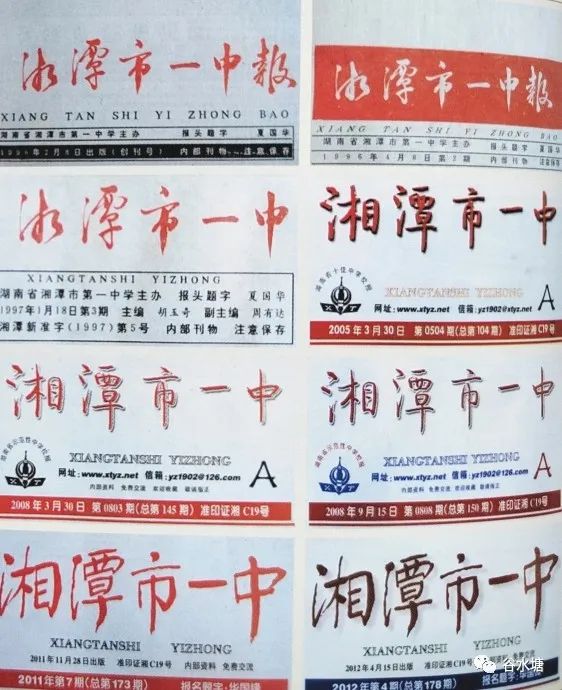 湘潭市一中報
XIANG TAN SHI YI ZHONG BAO
湖南省湘潭市第一中学主办 报头题字 夏国华
1996年2月8日出版(创刊号) 内部刊物 注意保存
湘潭市一中報
XIANG TAN SHI YI ZHONG BAO
湖南省湘潭市第一中学主办 报头题字 夏国华
1996年4月8日第2期 内部刊物 注意保存
湘潭市一中
XIANGTANSHI YIZHONG
湖南省湘潭市第一中学主办 报头题字 夏国华
1997年1月18日第3期 主编 胡玉奇 副主编 周有达
湘潭新准字(1997)第5号 内部刊物 注意保存
湘潭市一中
湖南省十佳中学校报
XIANGTANSHI YIZHONG
X T
网址:www.xtyz.net 信箱:yz1902@xtyz.net
A
2005年3月30日 第0504期(总第104期) 准印证湘C19号
湘潭市一中
湖南省示范性中学校报
XIANGTANSHI YIZHONG
X T
网址:www.xtyz.net 信箱:yz1902@126.com
A
内部资料 免费交流 欢迎收藏 敬请指正
2008年3月30日 第0803期(总第145期) 准印证湘C19号
湘潭市一中
湖南省示范性中学校报
XIANGTANSHI YIZHONG
X T
网址:www.xtyz.net 信箱:yz1902@126.com
A
内部资料 免费交流 欢迎收藏 敬请指正
2008年9月15日 第0808期(总第150期) 准印证湘C19号
湘潭市一中
XIANGTANSHI YIZHONG
2011年11月28日出版 准印证湘C19号 内部资料 免费交流
2011年第7期(总第173期) 报名题字·华国锋
湘潭市一中
XIANGTANSHI YIZHONG
2012年4月15日出版 准印证湘C19号 内部资料 免费交流
2012年第4期(总第178期) 报名题字·华国锋
谷水塘